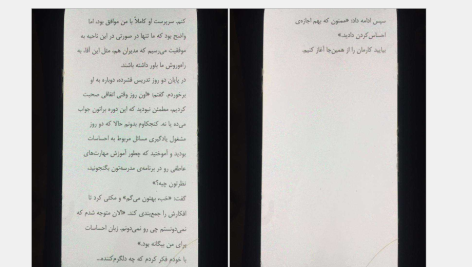 کنم. سرپرست او کاملاً با من موافق بود، اما
واضح بود که ما تنها در صورتی در این ناحیه به
موفقیت می‌رسیم که مدیران هم، مثل این آقا، به
راه‌وروش ما باور داشته باشند.
در پایان دو روز تدریس فشرده، دوباره به او
برخوردم. گفتم: «اون روز وقتی اتفاقی صحبت
کردیم، مطمئن نبودید که این دوره براتون جواب
می‌ده یا نه. کنجکاوم بدونم حالا که دو روز
مشغول یادگیری مسائل مربوط به احساسات
بودید و آموختید که چطور آموزش مهارت‌های
عاطفی رو در برنامه‌ی مدرسه‌تون بگنجونید،
نظرتون چیه؟»
گفت: «خب، بهتون می‌گم» و مکثی کرد تا
افکارش را جمع‌بندی کند. «الان متوجه شدم که
نمی‌دونستم چی رو نمی‌دونم. زبان احساسات
برای من بیگانه بود.»
با خودم فکر کردم که چه دلگرم‌کننده.
سپس ادامه داد: «ممنون که بهم اجازه‌ی
احساس کردن دادید.»
بیایید کارمان را از همین‌جا آغاز کنیم.